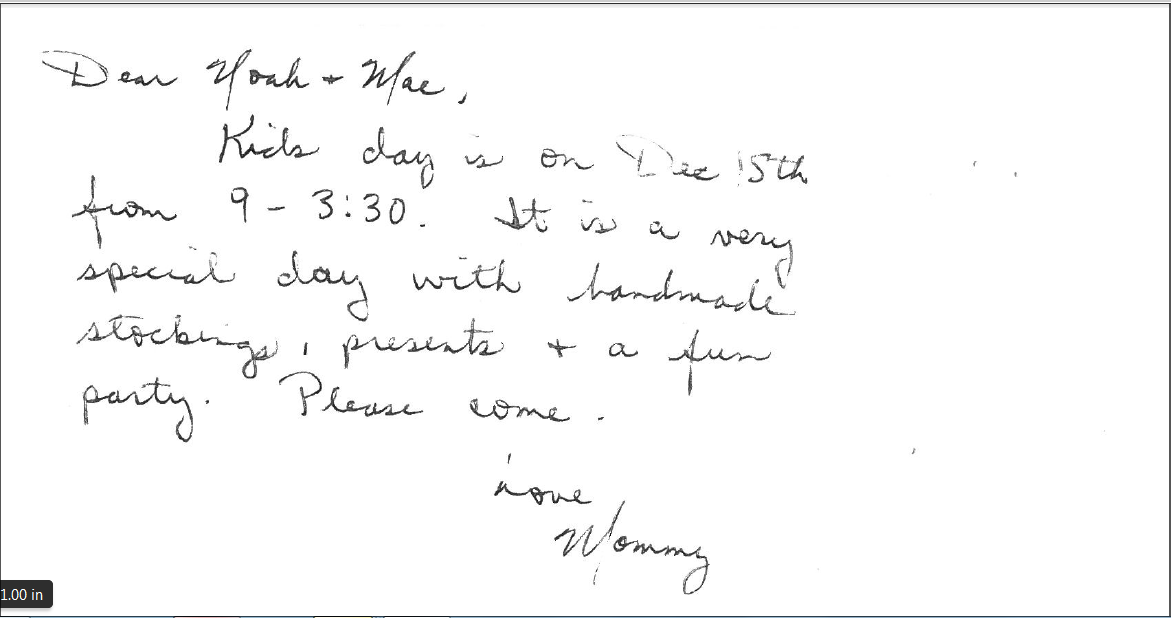 Dear Noah + Mae,
Kids day is on Dec 15th
from 9 - 3:30. It is a very
special day with handmade
stockings, presents + a fun
party. Please come.
Love
Mommy
1.00 in